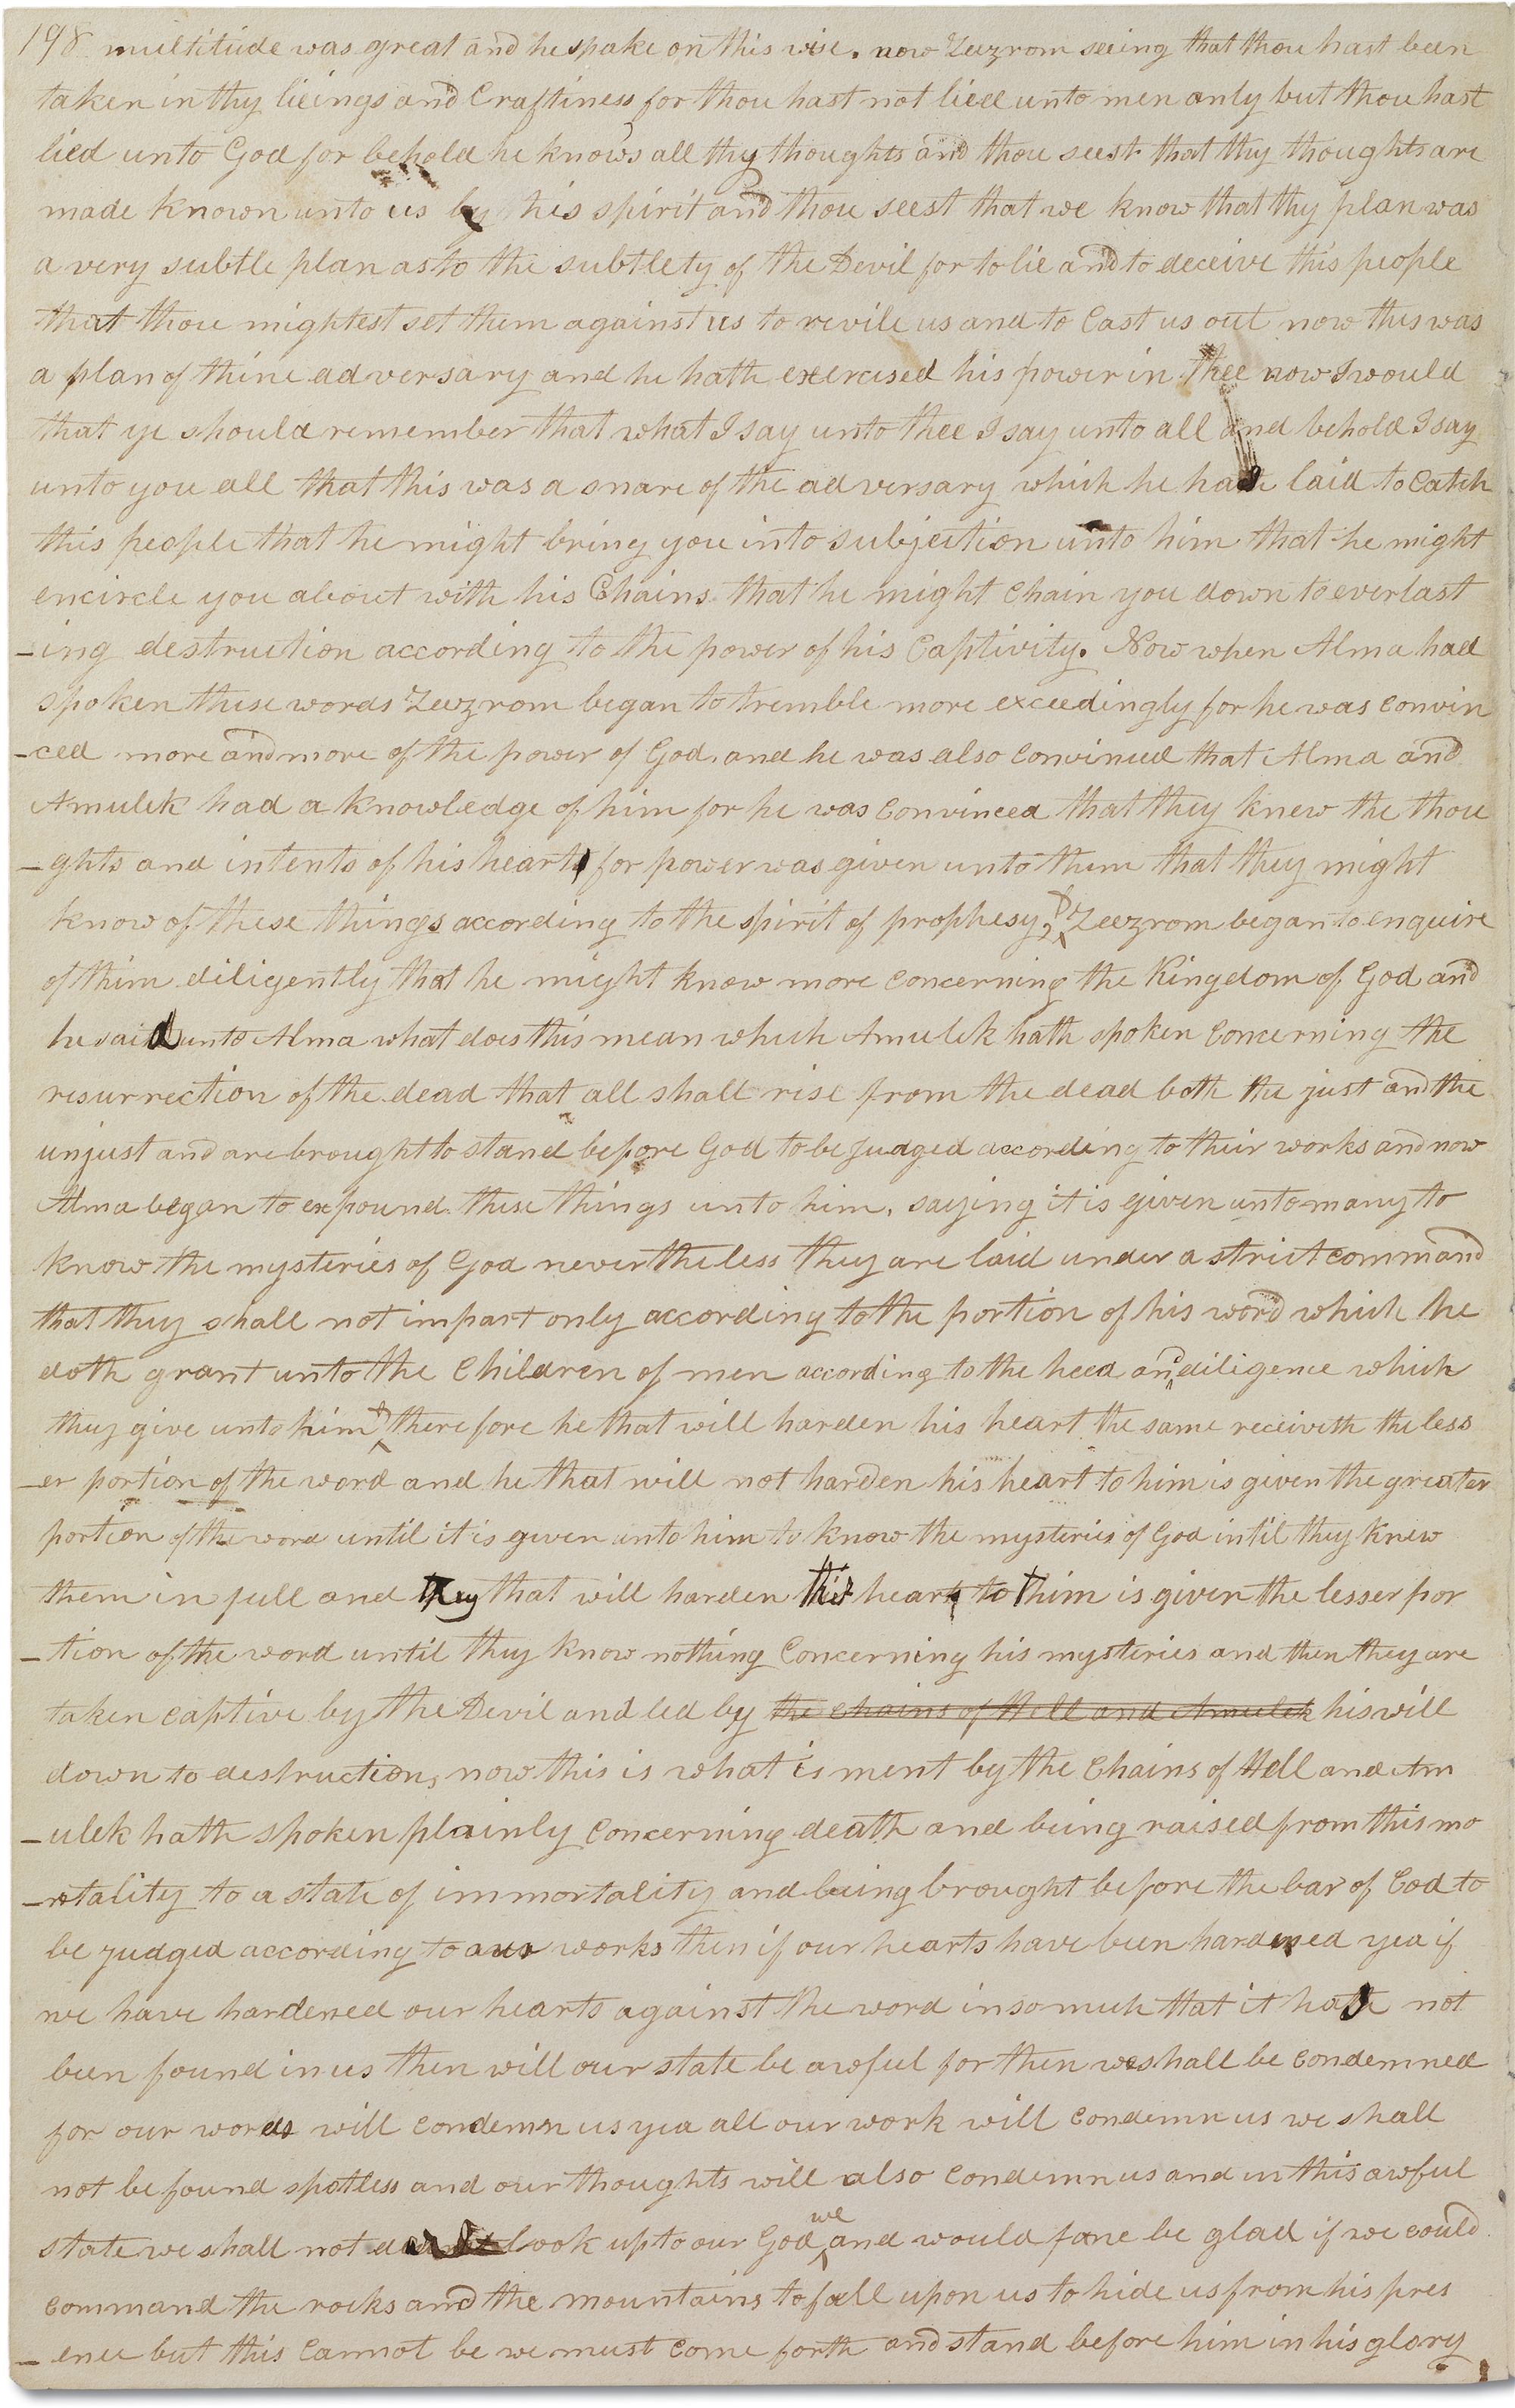 198 multitude was great and he spake on this wise. now Zeezrom seeing that thou hast been
taken in thy lieings and Craftiness for thou hast not lied unto men only but thou hast
lied unto God for behold he knows all thy thoughts and thou seest that thy thoughts are
made known unto us by his spirit and thou seest that we know that thy plan was
a very subtle plan as to the subtlety of the Devil for to lie and to deceive this people
that thou mightest set them against us to revile us and to Cast us out now this was
a plan of thine adversary and he hath exercised his power in thee now I would
that ye should remember that what I say unto thee I say unto all and behold I say
unto you all that this was a snare of the adversary which he has laid to Catch
this people that he might bring you into subjection unto him that he might
encircle you about with his Chains that he might Chain you down to everlast
-ing destruction according to the power of his Captivity. Now when Alma had
spoken these words Zeezrom began to tremble more exceedingly for he was convin
-ced more and more of the power of God, and he was also Convinced that Alma and
Amulek had a knowledge of him for he was Convinced that they knew the thou
-ghts and intents of his heart for power was given unto them that they might
know of these things according to the spirit of prophesy, & Zeezrom began to enquire
of him diligently that he might know more concerning the Kingdom of God and
he said unto Alma what does this mean which Amulek hath spoken Concerning the
resurrection of the dead that all shall rise from the dead both the just and the
unjust and are brought to stand before God to be judged according to their works and now
Alma began to expound these things unto him, saying it is given unto many to
know the mysteries of God nevertheless they are laid under a strict command
that they shall not impart only according to the portion of his word which he
doth grant unto the Children of men according to the heed and diligence which
they give unto him & therefore he that will harden his heart the same receiveth the less
-er portion of the word and he that will not harden his heart to him is given the greater
portion of the word until it is given unto him to know the mysteries of God until they knew
them in full and they that will harden their hearts to them is given the lesser por
-tion of the word until they know nothing Concerning his mysteries and then they are
taken captive by the Devil and led by the Chains of Hell and Amulek his will
down to destruction, now this is what is ment by the Chains of Hell and Am
-ulek hath spoken plainly Concerning death and being raised from this mo
-rtality to a state of immortality and being brought before the bar of God to
be judged according to our works then if our hearts have been hardened yea if
we have hardened our hearts against the word insomuch that it has not
been found in us then will our state be awful for then we shall be Condemned
for our words will condemn us yea all our work will condemn us we shall
not be found spotless and our thoughts will also Condemn us and in this awful
state we shall not dare look up to our God we and would fane be glad if we could
command the rocks and the mountains to fall upon us to hide us from his pres
-ence but this Cannot be we must Come forth and stand before him in his glory